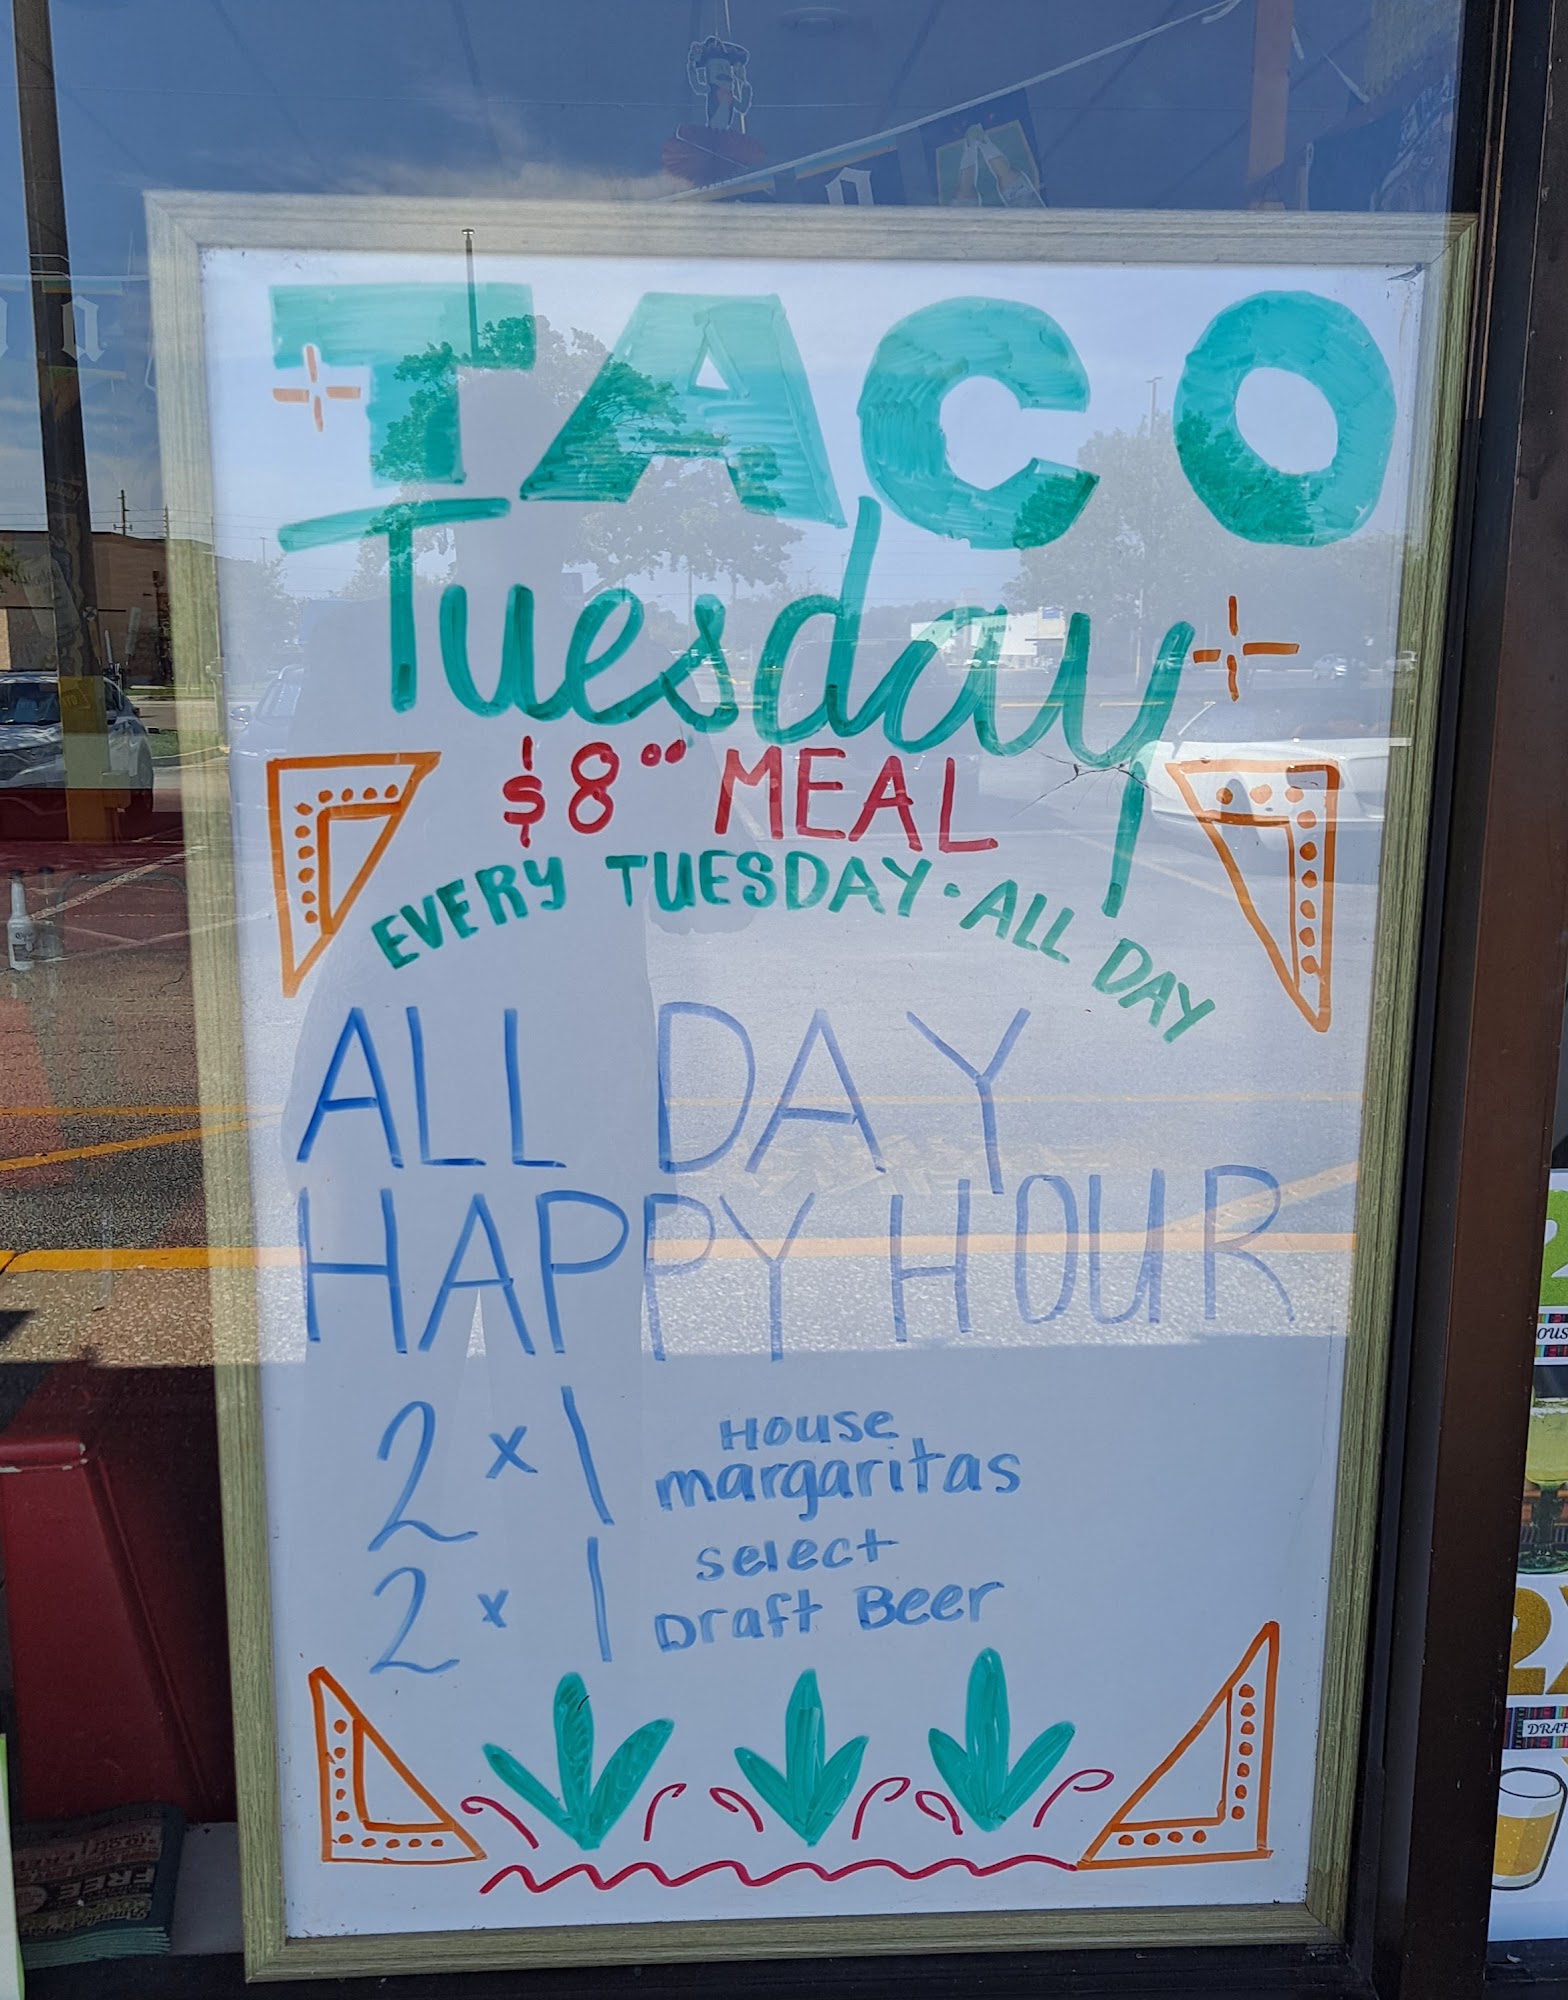 TACO
Tuesday
$8°° MEAL
EVERY TUESDAY · ALL DAY
ALL DAY
HAPPY HOUR
2 x 1 HOUSE
margaritas
2 x 1 select
Draft Beer
FREE